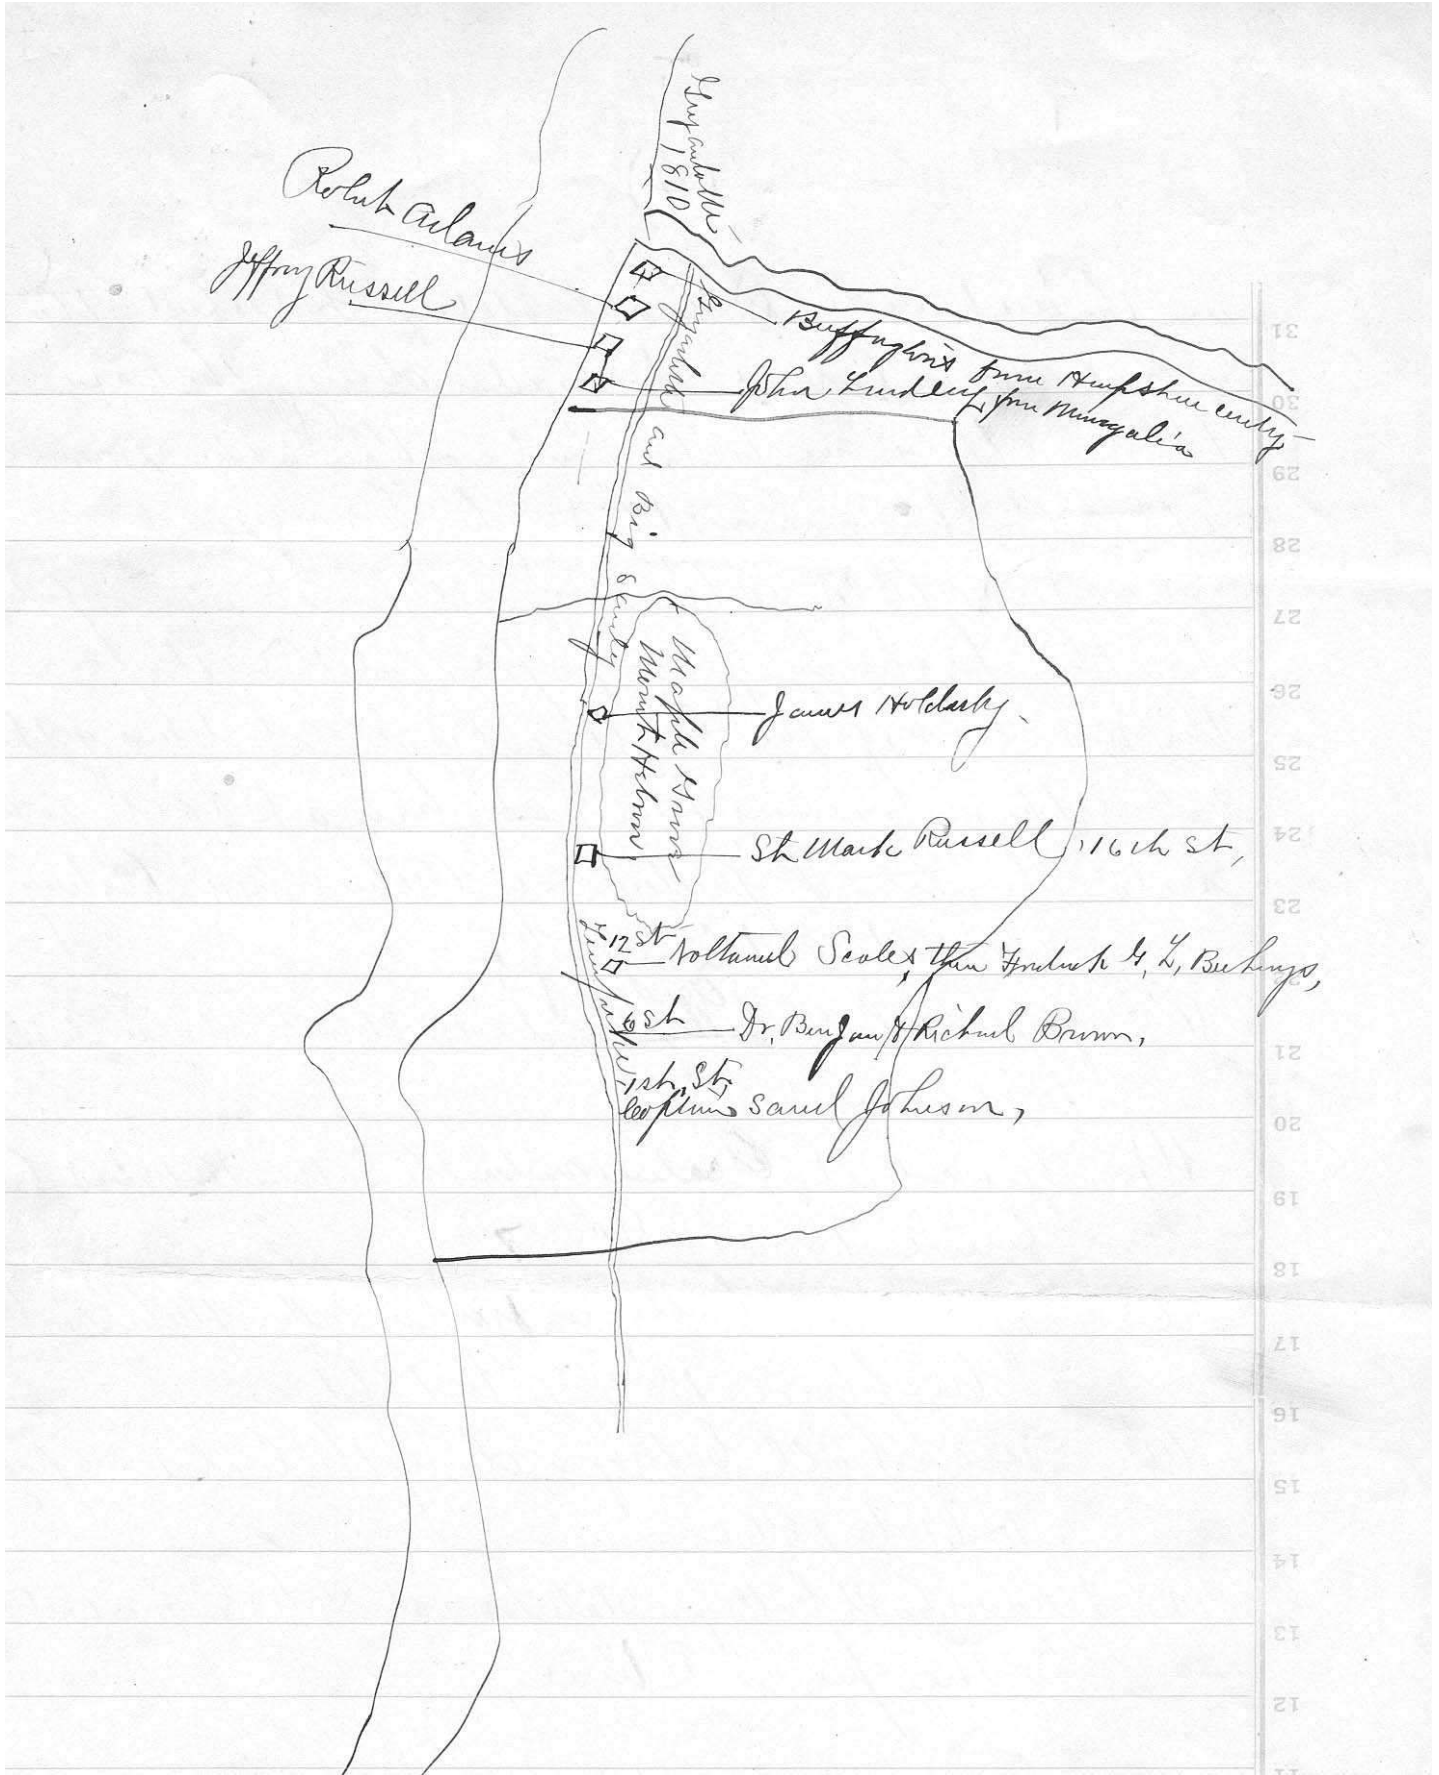 Guyandotte
1810
Robert Adams
Jeffrey Russell
Buffington's from Hampshire county
John Lindley, from
Guyandotte and Big Sandy
Maple Grove
Mount Hebron
James Holdasby.
St Mark Russell, 16th St,
12 St
Scales, then Fredrick G, L, Beuhrings,
Turnpike
6 St Dr. Benjam & Richard Brown,
1st, St,
Captain Samel Johnson,
31
30
29
28
27
26
25
24
23
21
20
19
18
17
16
15
14
13
12